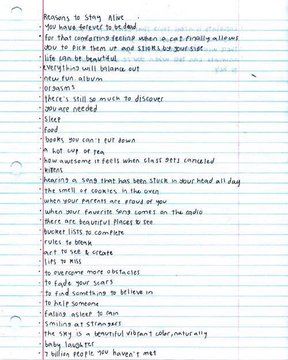 Reasons to Stay Alive
· you have forever to be dead
· for that comforting feeling when a cat finally allows
you to pick them up and sticks by your side
· life can be beautiful
· everything will balance out
· new fun. album
· orgasms
· there's still so much to discover
· you are needed
· sleep
· food
· books you can't put down
· a hot cup of tea
· how awesome it feels when class gets canceled
· kittens
· hearing a song that has been stuck in your head all day
· the smell of cookies in the oven
· when your parents are proud of you
· when your favorite song comes on the radio
· there are beautiful places to see
· bucket lists to complete
· rules to break
· art to see & create
· lips to kiss
· to overcome more obstacles
· to fade your scars
· to find something to believe in
· to help someone
· falling asleep to rain
· smiling at strangers
· the sky is a beautiful vibrant color, naturally
· baby laughter
· 7 billion people you haven't met